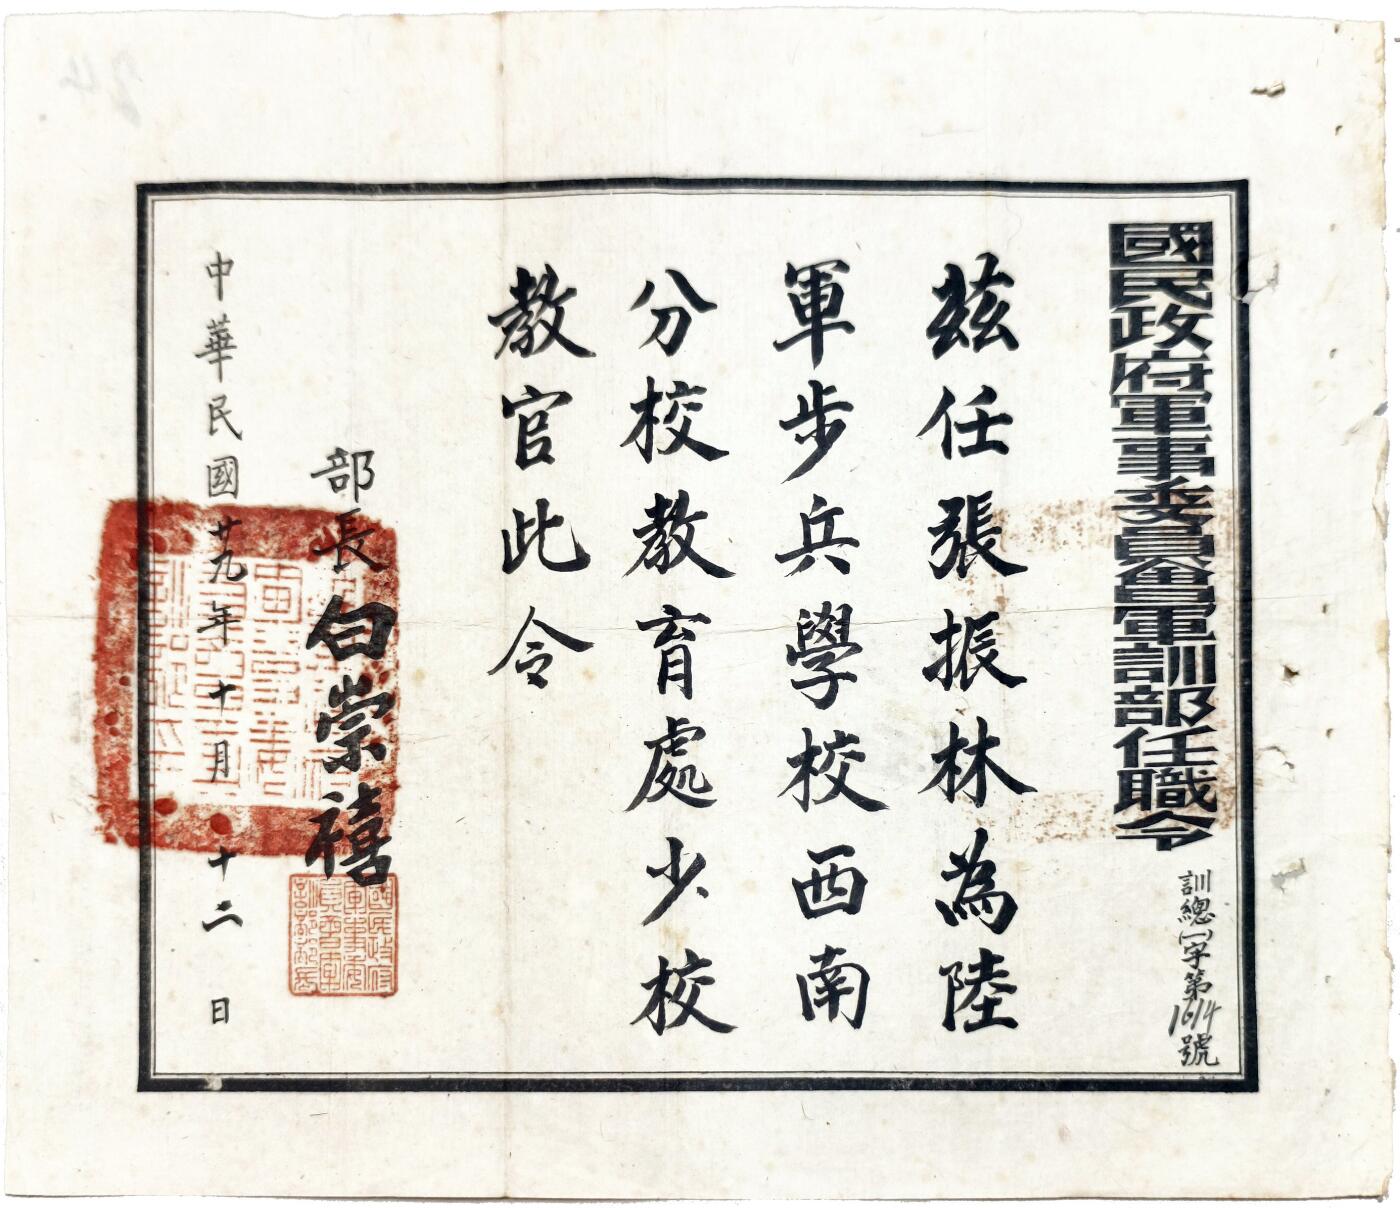 國民政府軍事委員會軍訓部任職令
訓總(一)字第1614號
茲任張振林為陸
軍步兵學校西南
分校教育處少校
教官此令
部長白崇禧
國民政府
軍事委
員會軍
訓部部長
中華民國廿九年十月十二日
24